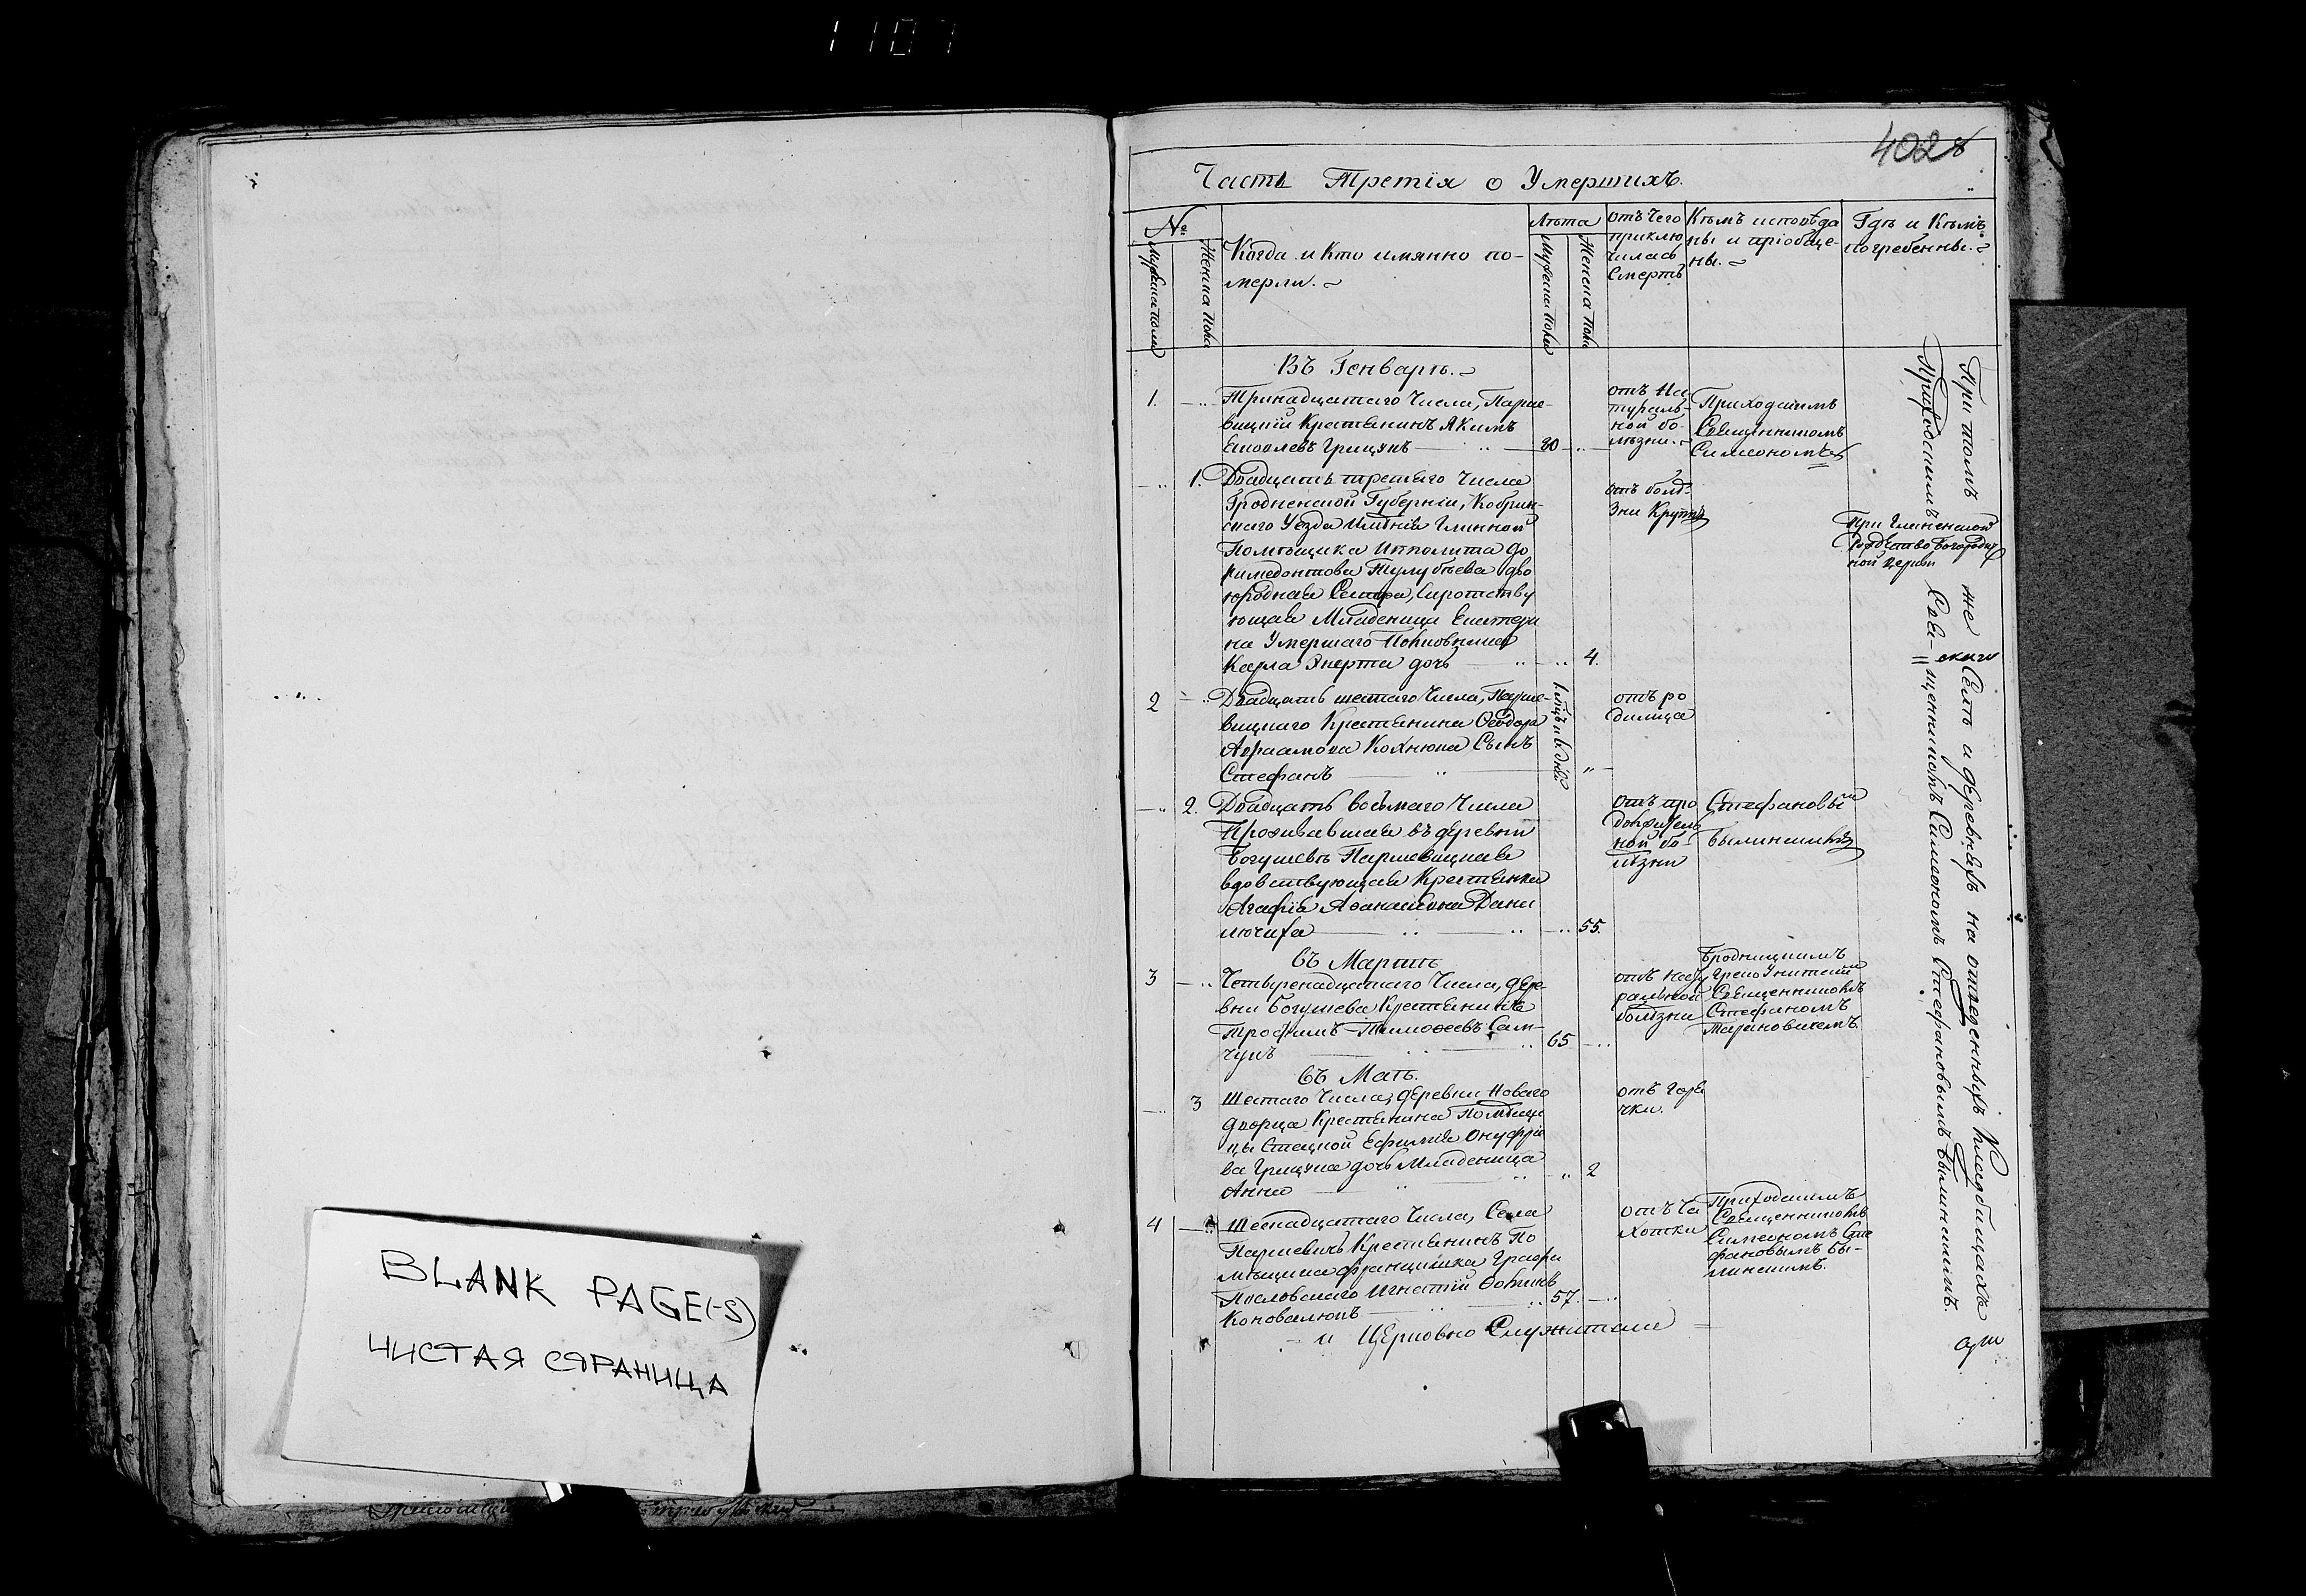 1107
BLANK PAGE(-S)
ЧИСТАЯ СТРАНИЦА
402
Часть Третія о Умершихъ.
№
Мужеска пола
Женска пола
Когда и Кто имянно по-
мерли.
Лѣта
Мужеска пола
Женска пола
отъ Чего
приклю
чилась
Смерть
Кѣмъ исповѣда
ны и пріобще-
ны.
Гдѣ и Кѣмъ
погребенны.
Въ Генварѣ.
1. Тринадцатаго Числа, Парше-
вицкій Крестьянинъ Якимъ
Яковлевъ Грицукъ 80
отъ На
тураль-
ной бо-
лѣзни.
Приходскимъ
Священникомъ
Симеономъ
1. Двадцать третьяго Числа
Гродненской Губерніи, Кобрин-
скаго Уѣзда Имѣнія Глинной
Помѣщика Ипполита До
римедонтова Тулубьева дво
юродная Сестра, Сиротству
ющая Младеница Екатери
на Умершаго Полковника
Карла Экерта дочь 4.
отъ болѣ-
зни Крупъ
При Глиненской
Рождество Богородич
ной Церкви
2 Двадцать шестаго Числа, Парше-
вицкаго Крестьянина Ѳеодора
Авраамова Кохнюка Сынъ
Стефанъ
отъ ро
димца
2. Двадцать восьмаго Числа
Проживавшая въ деревни
Богушевѣ Паршевицкая
вдовствующая Крестьянка
Агафія Аѳанасіева Дани
лючиха 55.
отъ про
должитель
ной бо-
лѣзни
Стефановымъ
Былинскимъ
Въ Мартѣ
3 Четвернадцатаго Числа, дере
вни Богушева Крестьянинъ
Трофимъ Тимоѳеевъ Сам-
чукъ 65
отъ нату
ральной
болѣзни
Бродницкимъ
Греко Унитскимъ
Священникомъ
Стефаномъ
Тарановичемъ
Въ Маѣ.
3 Шестаго Числа, деревни Новаго
дворца Крестьянина Помѣщи
цы Стецкой Ефимія Онуфріе
ва Грицука дочь Младеница
Анна 2
отъ горя
чки.
4 Шестнадцатаго Числа, Села
Паршевичъ Крестьянинъ По
мѣщика Францишка Графа
Пословскаго Игнатій Ѳокинъ
Коновалюкъ 57.
отъ Ча
хотки
Приходскимъ
Священникомъ
Симеономъ Сте
фановымъ Бы-
линскимъ.
и Церковно Служители
При томъ же Селѣ и деревняхъ на отведенныхъ Кладбищахъ
Приходскимъ Священникомъ Симеономъ Стефановымъ Былинскимъ.